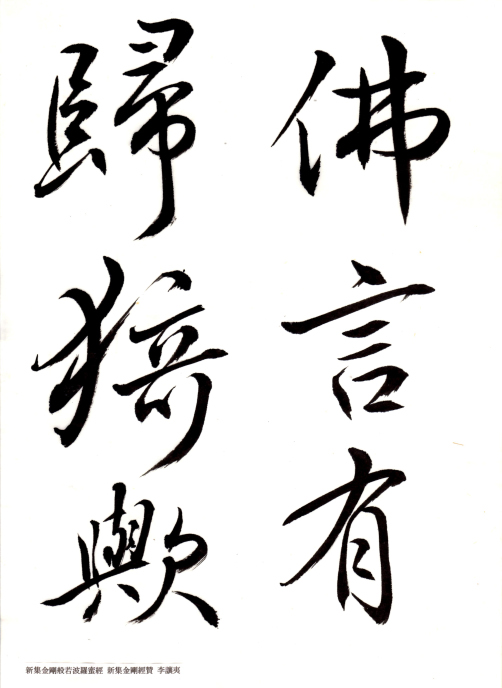 佛言有
歸猗歟
新集金剛般若波羅蜜經 新集金剛經贊 李讓夷